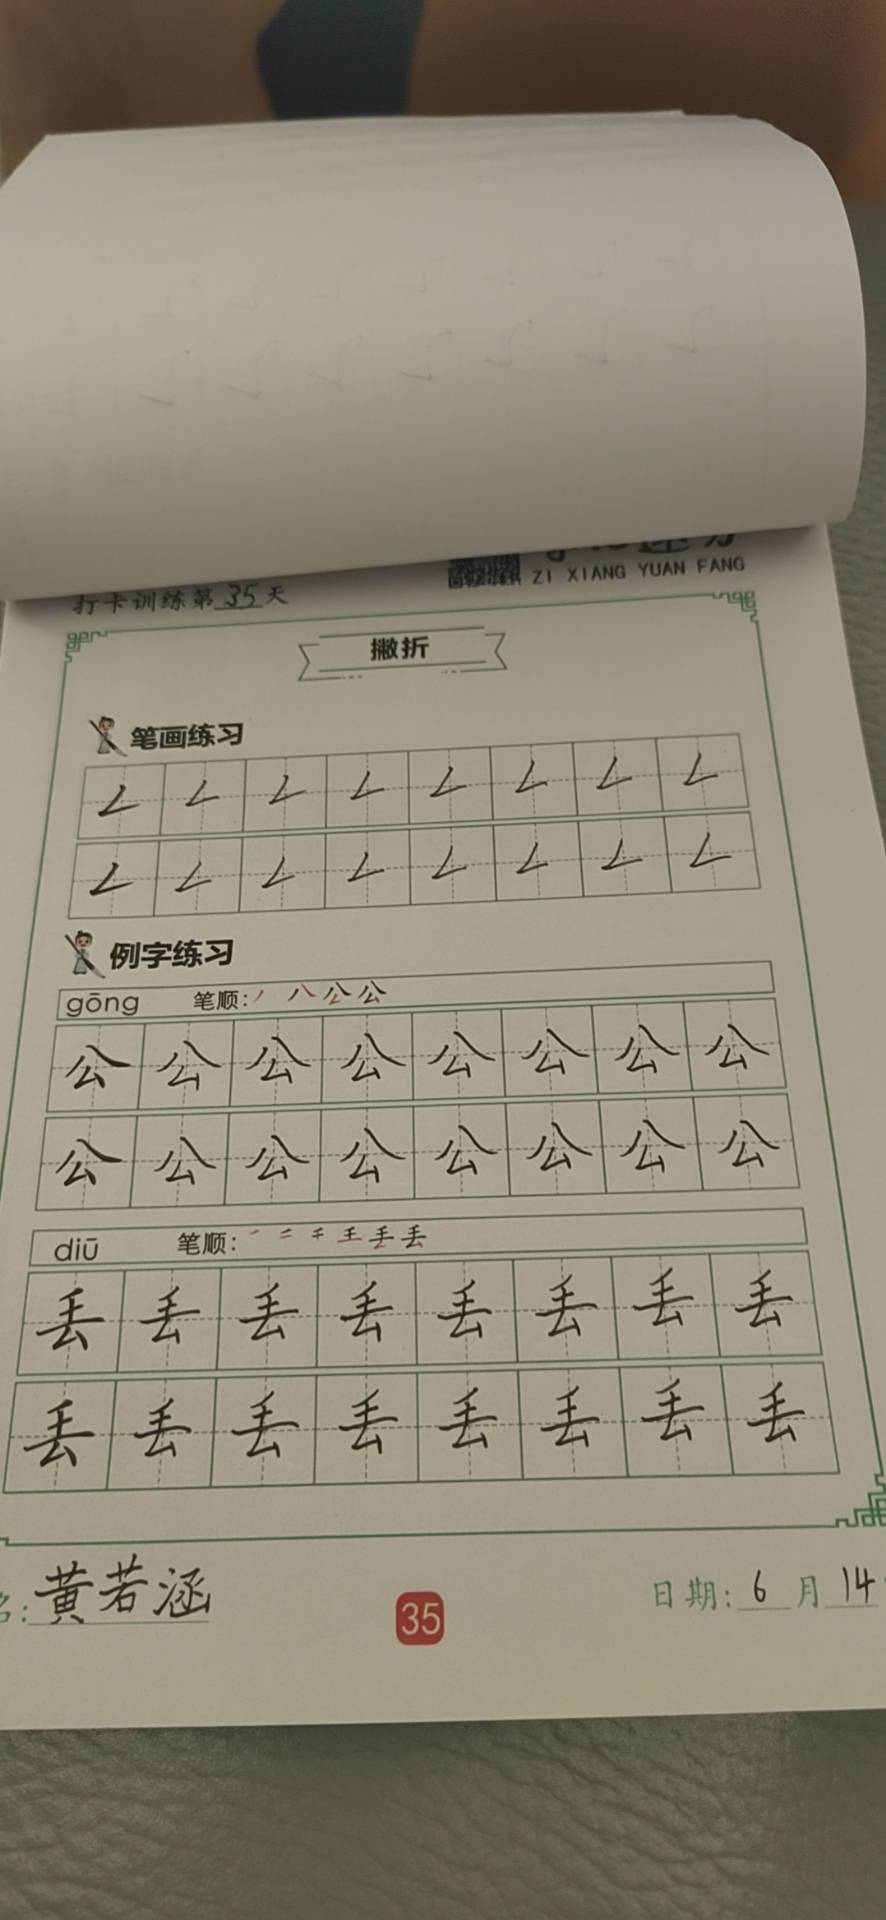 ZI XIANG YUAN FANG
打卡训练第35天
撇折
笔画练习
𠃋 𠃋 𠃋 𠃋 𠃋 𠃋 𠃋 𠃋
𠃋 𠃋 𠃋 𠃋 𠃋 𠃋 𠃋 𠃋
例字练习
gōng 笔顺: 丿 八 公 公
公 公 公 公 公 公 公 公
公 公 公 公 公 公 公 公
diū 笔顺: 一 二 千 王 丢 丢
丢 丢 丢 丢 丢 丢 丢 丢
丢 丢 丢 丢 丢 丢 丢 丢
名: 黄若涵 35 日期: 6 月 14